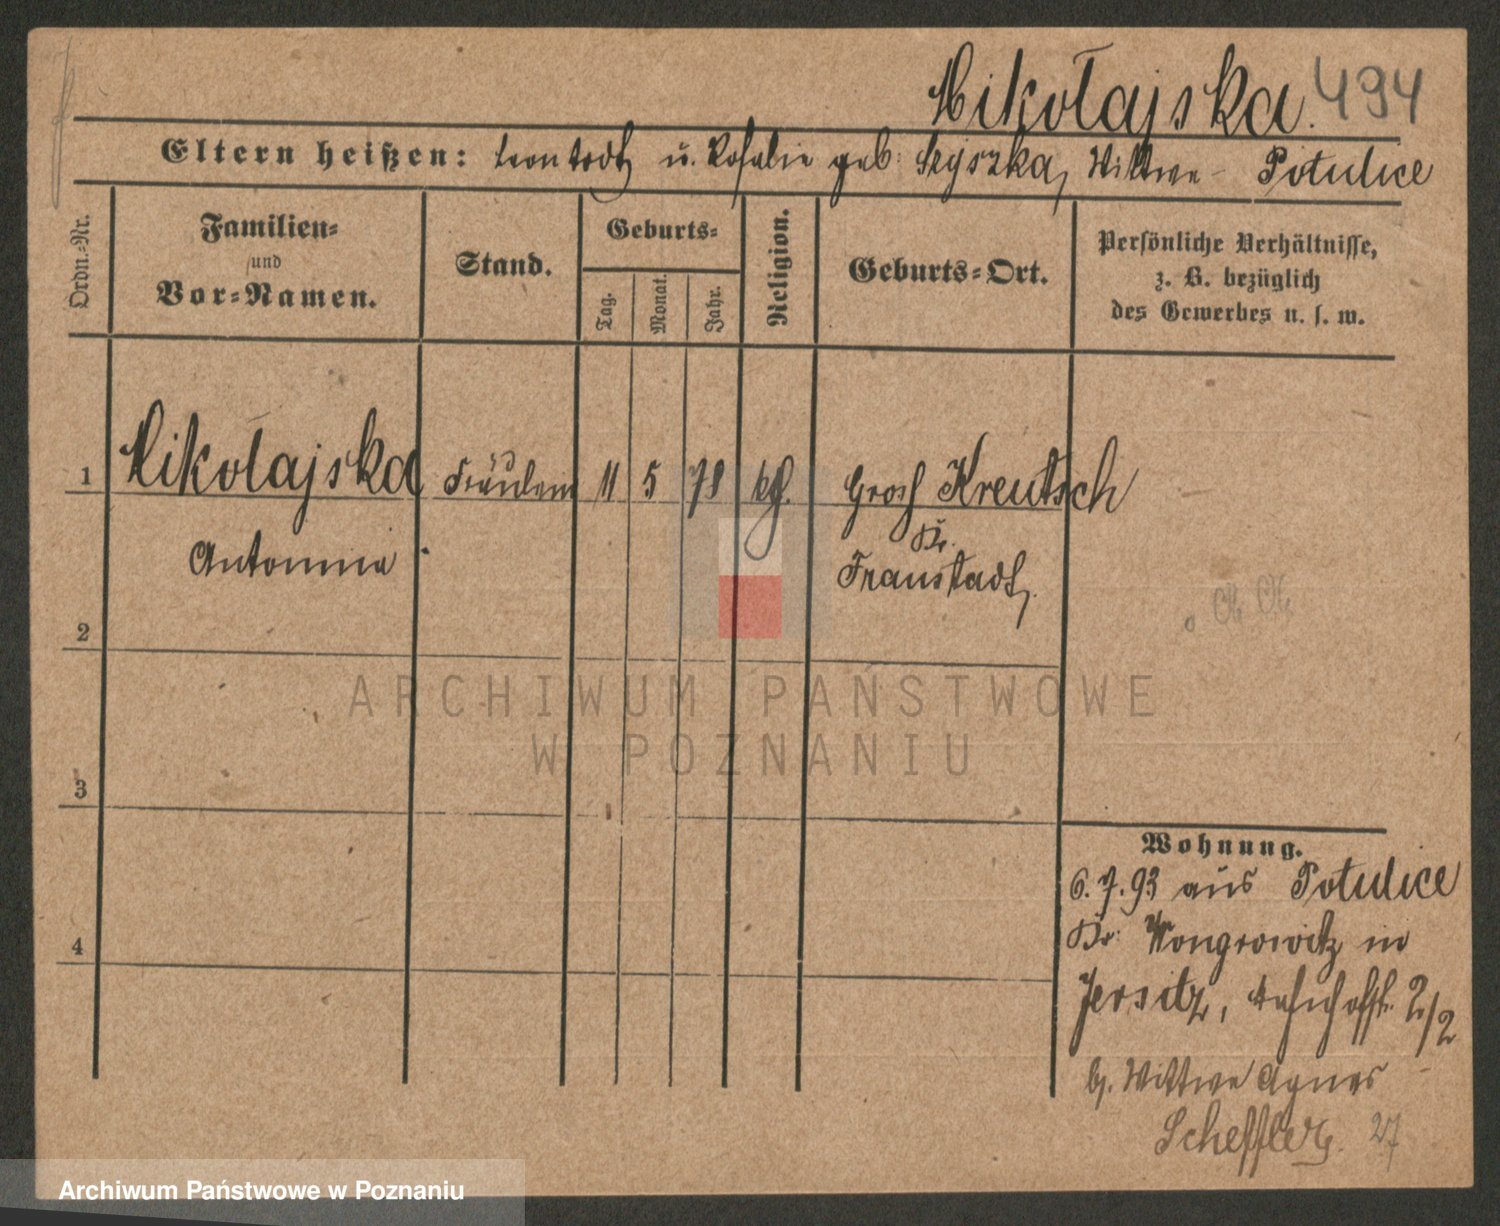 Mikołajska. 494
Eltern heißen: todt u. Rosalie geb: Szyszka, Wittwe - Potulice
Ordn.-Nr.
Familien-
und
Vor-Namen.
Stand.
Geburts-
Tag.
Monat.
Jahr.
Religion.
Geburts-Ort.
Persönliche Verhältnisse,
z. B. bezüglich
des Gewerbes u. s. w.
1 Mikołajska Fräulein 11 5 78 kth. Groß Kreutsch
Kr.
Antonina Fraustadt,
2
3
4
Wohnung.
6.7.93 aus Potulice
Kr: Wongrowitz in
Jersitz, 2/2
b. Wittwe Agnes
Scheffler. 27
ARCHIWUM PAŃSTWOWE
W POZNANIU
Archiwum Państwowe w Poznaniu